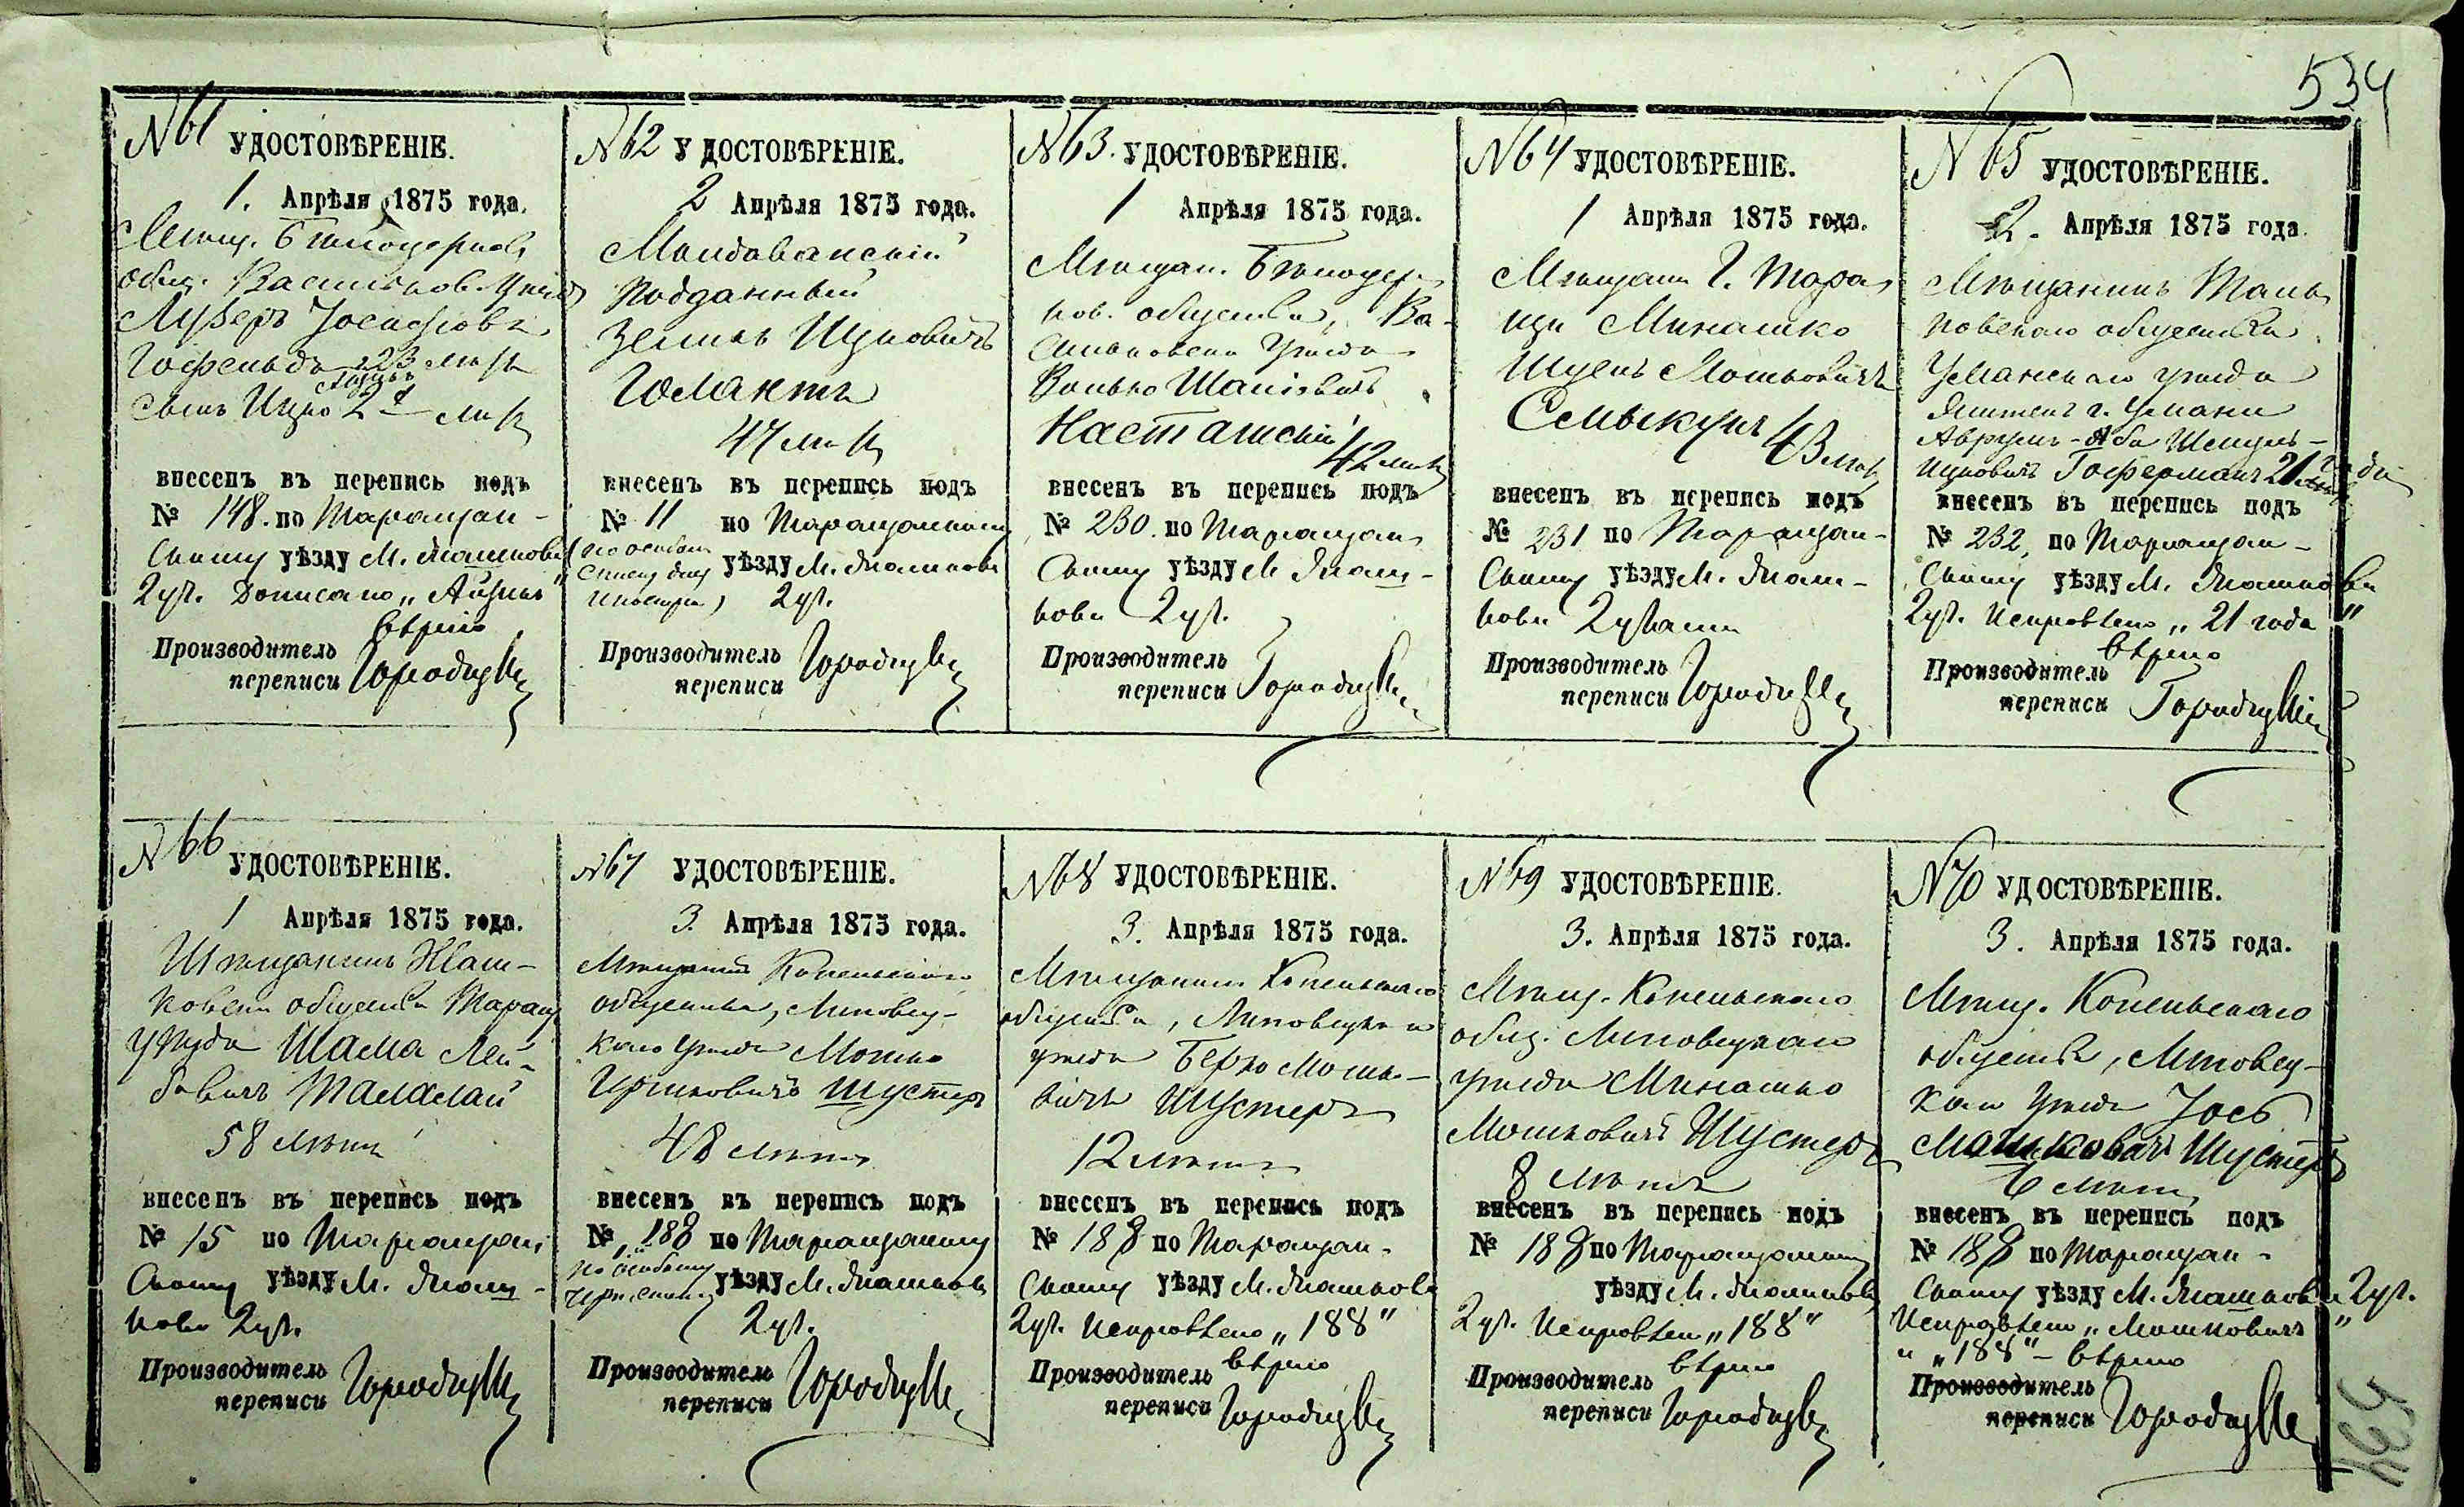 534
№ 61 УДОСТОВѢРЕНІЕ.
1. Апрѣля 1875 года.
Мѣщ. Бѣлоцерков.
общ. Васильков. уѣзда
Лузеръ Іосифовъ
Гофельдъ 23 лѣтъ
Айзикъ
сынъ Ицко 2 лѣтъ
внесенъ въ перепись подъ
№ 148. по Таращан-
скому уѣзду М.
2 уч. Дописано „Айзикъ"
вѣрно
Производитель
переписи
№ 62 УДОСТОВѢРЕНІЕ.
2 Апрѣля 1875 года.
Молдаванскій
подданный
Зеликъ Ицковичъ
Голактъ
47 лѣтъ
внесенъ въ перепись подъ
№ 11 по Таращанскому
(по особому
списку для уѣзду М.
иностр.) 2 уч.
Производитель
переписи
№ 63. УДОСТОВѢРЕНІЕ.
1 Апрѣля 1875 года.
Мѣщан. Бѣлоцер-
ков. общества, Ва-
сильковскаго уѣзда
Волько
Насташскій
42 лѣтъ
внесенъ въ перепись подъ
№ 230. по Таращан-
скому уѣзду М.
2 уч.
Производитель
переписи
№ 64 УДОСТОВѢРЕНІЕ.
1 Апрѣля 1875 года.
Мѣщанинъ г. Тара-
щи Минашко
Шулевъ Мошковичъ
43 лѣтъ
внесенъ въ перепись подъ
№ 231 по Таращан-
скому уѣзду М.
2 участка
Производитель
переписи
№ 65 УДОСТОВѢРЕНІЕ.
2. Апрѣля 1875 года.
Мѣщанинъ Таль-
новскаго общества
Уманскаго уѣзда
житель г. Умани
Аврумъ-Аба
Ицковичъ Гоферманъ 21 года
внесенъ въ перепись подъ
№ 232, по Таращан-
скому уѣзду М.
2 уч. Исправлено „21 года"
вѣрно
Производитель
переписи
№ 66 УДОСТОВѢРЕНІЕ.
1 Апрѣля 1875 года.
Мѣщанинъ
общества Таращ.
уѣзда Шама Лей-
бовичъ Талалай
58 лѣтъ
внесенъ въ перепись подъ
№ 15 по Таращан-
скому уѣзду М.
2 уч.
Производитель
переписи
№ 67 УДОСТОВѢРЕНІЕ.
3. Апрѣля 1875 года.
Мѣщанинъ Конельскаго
общества, Липовец-
каго уѣзда Мошко
Шустеръ
48 лѣтъ
внесенъ въ перепись подъ
№ 188 по Таращанскому
по особому
уѣзду М.
2 уч.
Производитель
переписи
№ 68 УДОСТОВѢРЕНІЕ.
3. Апрѣля 1875 года.
Мѣщанинъ Конельскаго
общества, Липовецкаго
уѣзда Берко Мошко-
вичъ Шустеръ
12 лѣтъ
внесенъ въ перепись подъ
№ 188 по Таращан-
скому уѣзду М.
2 уч. Исправлено „188"
вѣрно
Производитель
переписи
№ 69 УДОСТОВѢРЕНІЕ.
3. Апрѣля 1875 года.
Мѣщ. Конельскаго
общ. Липовецкаго
уѣзда Минашко
Мошковичъ Шустеръ
8 лѣтъ
внесенъ въ перепись подъ
№ 188 по Таращанскому
уѣзду М.
2 уч. Исправлено „188"
вѣрно
Производитель
переписи
№ 70 УДОСТОВѢРЕНІЕ.
3. Апрѣля 1875 года.
Мѣщ. Конельскаго
общества, Липовец-
каго уѣзда Іось
Мошковичъ Шустеръ
6 лѣтъ
внесенъ въ перепись подъ
№ 188 по Таращан-
скому уѣзду М. 2 уч.
Исправлено „Мошковичъ"
и „188" - вѣрно
Производитель
переписи
534